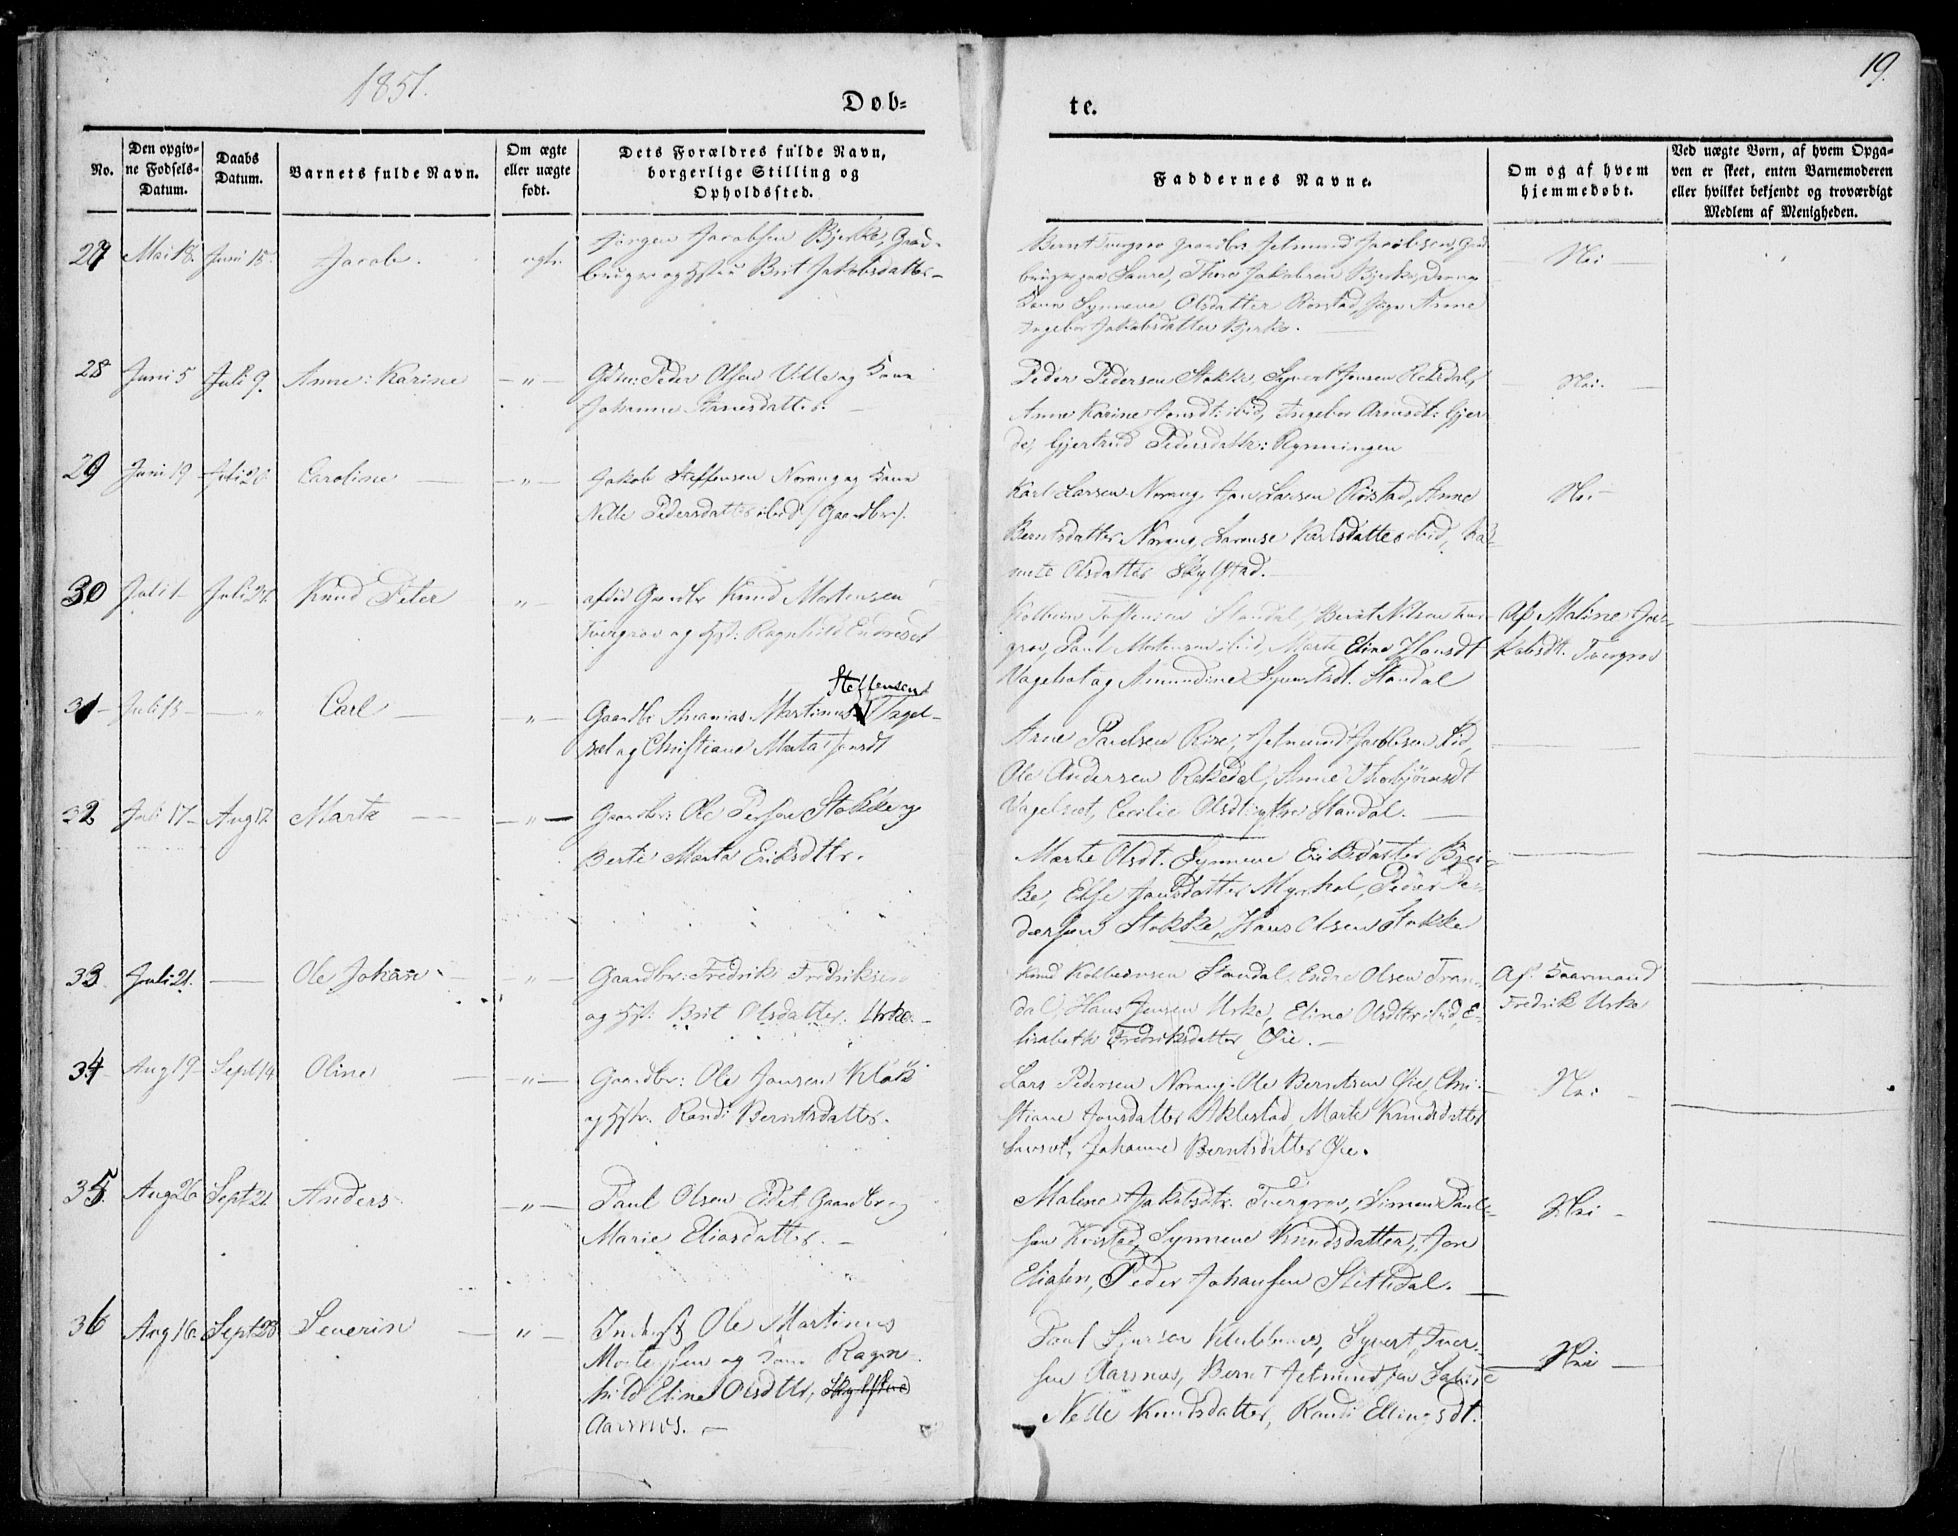 1851.
19.
Døb=
te.
No.
Den opgiv-
ne Fødsels-
Datum.
Daabs
Datum.
Barnets fulde Navn.
Om ægte
eller uægte
født.
Dets Forældres fulde Navn,
borgerlige Stilling og
Opholdssted.
Faddernes Navne.
Om og af hvem
hjemmedøbt.
Ved uægte Børn, af hvem Opga-
ven er skeet, enten Barnemoderen
eller hvilket bekjendt og troværdigt
Medlem af Menigheden.
27 Mai 18. Juni 15. Jacob. ægte
Jørgen Jacobsen Bjerke, Gaard-
bruger og Hstr Brit Jakobsdatter-
Bernt Tvergrov Gaardbr. Jetmund Jacobsen, Gaard
bruger paa Saure, Thore Jakobsen Bjerke, Dreng
Kone Synneve Olsdatter Rørstad, Pige Anne
Ingebor Jakobsdatter Bjerke.
Nei
28 Juni 5 Juli 9. Anne: Karine — " —
Gdm: Peder Olsen Ville og Kone
Johanne Arnesdatter. —
Peder Pedersen Stokke, Syvert Jonsen Rekedal,
Anne Karine Jonsdt: ibid, Ingebor Arnesdt: Gjer
de, Gjertrud Pedersdattr: Rynningen
Nei.
29 Juni 19 Juli 20. Caroline — — " —
Jakob Steffensen Norang og Kone
Nelle Pedersdatter ibid / Gaardbr /.
Karl Larsen Norang, Jon Larsen Rørstad, Anne
Berntsdatter Norang, Larense Karlsdatter ibid,
Olsdatter Skylstad. —
Nei
30 Juli 1 Juli 27. Knud Peter " —
afdød Gaardbr Knud Mortensen
Tvergrov og Hst: Ragnhild Endresdt
Kolbein Steffensen Standal, Bernt Nilsen Tver
grov, Paul Mortensen ibid, Marte Eline Hansdt
Vagelsæt og Amundine Syvertsdt. Standal
Af Maline Ja-
kobsdt. Tvergrov
31 Juli 13 — " Carl — — " —
Steffensen
Gaardbr Ananias Martinus Vagel-
sæt og Christiane Marta Jonsdt
Arne Paulsen Rise, Jetmund Jacobsen Lid,
Ole Andersen Rekedal, Anne Thorbjørnsdt
Vagelsæt, Cecilie Olsdt: ytre Standal. —
32 Juli 17 — Aug 17. Marta — — " —
Gaardbr: Ole Persen Stokke og
Berte Marta Eriksdttr.
Marte Olsdt. Synneve Eriksdatter Bjer-
ke, Else Jonsdatter Myrhol, Peder Pe-
dersen Stokke, Hans Olsen Stokke
33 Juli 21. — Ole Johan — — " —
Gaardbr: Fredrik Fredriksen
og Hst: Brit Olsdatter. Urke. —
Knud Kolbeinsen Standal, Endre Olsen Tran-
dal, Hans Jensen Urke, Eline Olsdttr ibid, E-
lisabeth Fredriksdatter Øie. —
Af Kaarmand
Fredrik Urke
34 Aug 19 Sept 14 Oline — — " —
Gaardbr: Ole Jansen Klok
og Hstr. Randi Berntsdatter.
Lars Pedersen Norang, Ole Berntsen Øie, Chri-
stiane Jonsdatter Aklestad, Marte Knudsdatter
Johanne Berntsdatter Øie.
Nei
35 Aug 26 Sept 21 Anders — " —
Paul Olsen Eidet, Gaardbr og
Marie Eliasdatter. —
Malene Jakobsdtr. Tvergrov, Simen Paul-
sen Kvistad, Synneve Knudsdatter, Jon
Eliasen, Peder Johansen Slettedal.
Nei —
36 Aug 16. Sept 28. Severin — — " —
Inderst Ole Martinus
Mortensen og Kone Ragn-
hild Eline Olsdttr, Skylstad
Aarsnes. —
Paul Sjursen Klubbenes, Syvert Iver-
sen Aarsnes, Bernt Jetmundsen
Nelle Knudsdatter, Randi Ellingsdt.
— Nei —